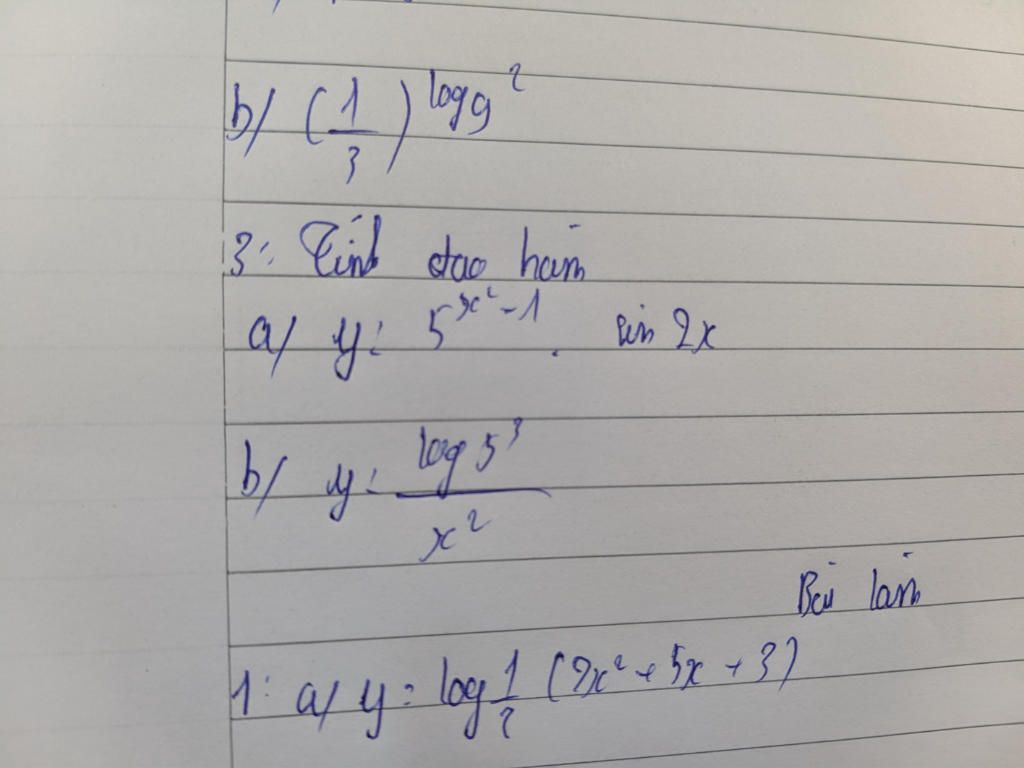 b/ (1/3)^log9^2
3: Tính đạo hàm
a/ y = 5^x²-1 . sin 2x
b/ y = log5^3 / x²
Bài làm
1: a/ y = log 1/2 (2x² + 5x + 3)